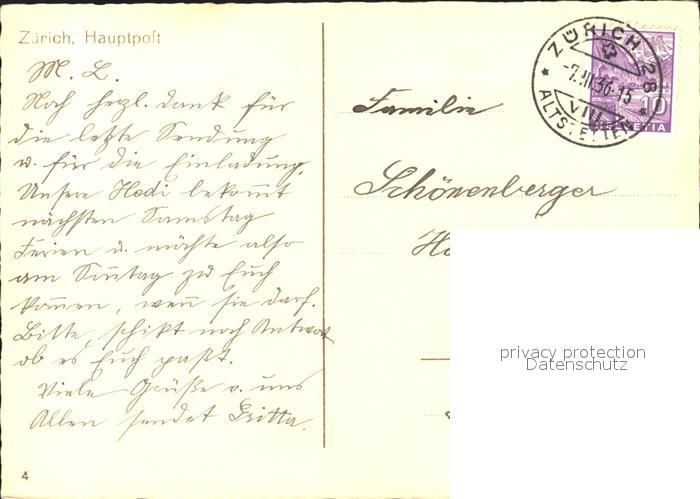 Zürich, Hauptpost
M. L.
Noch herzl. Dank für
die letzte Sendung
u. für die Einladung.
Unsere Hedi bekommt
nächsten Samstag
Ferien u. möchte also
am Sonntag zu Euch
kommen, wenn sie darf.
Bitte, schikt noch Antwort
ob es Euch paßt.
Viele Grüße v. uns
Allen sendet
4
Familie
Schönenberger
ZÜRICH 28
-7.III.36-15
VIII
ALTSTETTEN
10
HELVETIA
privacy protection
Datenschutz